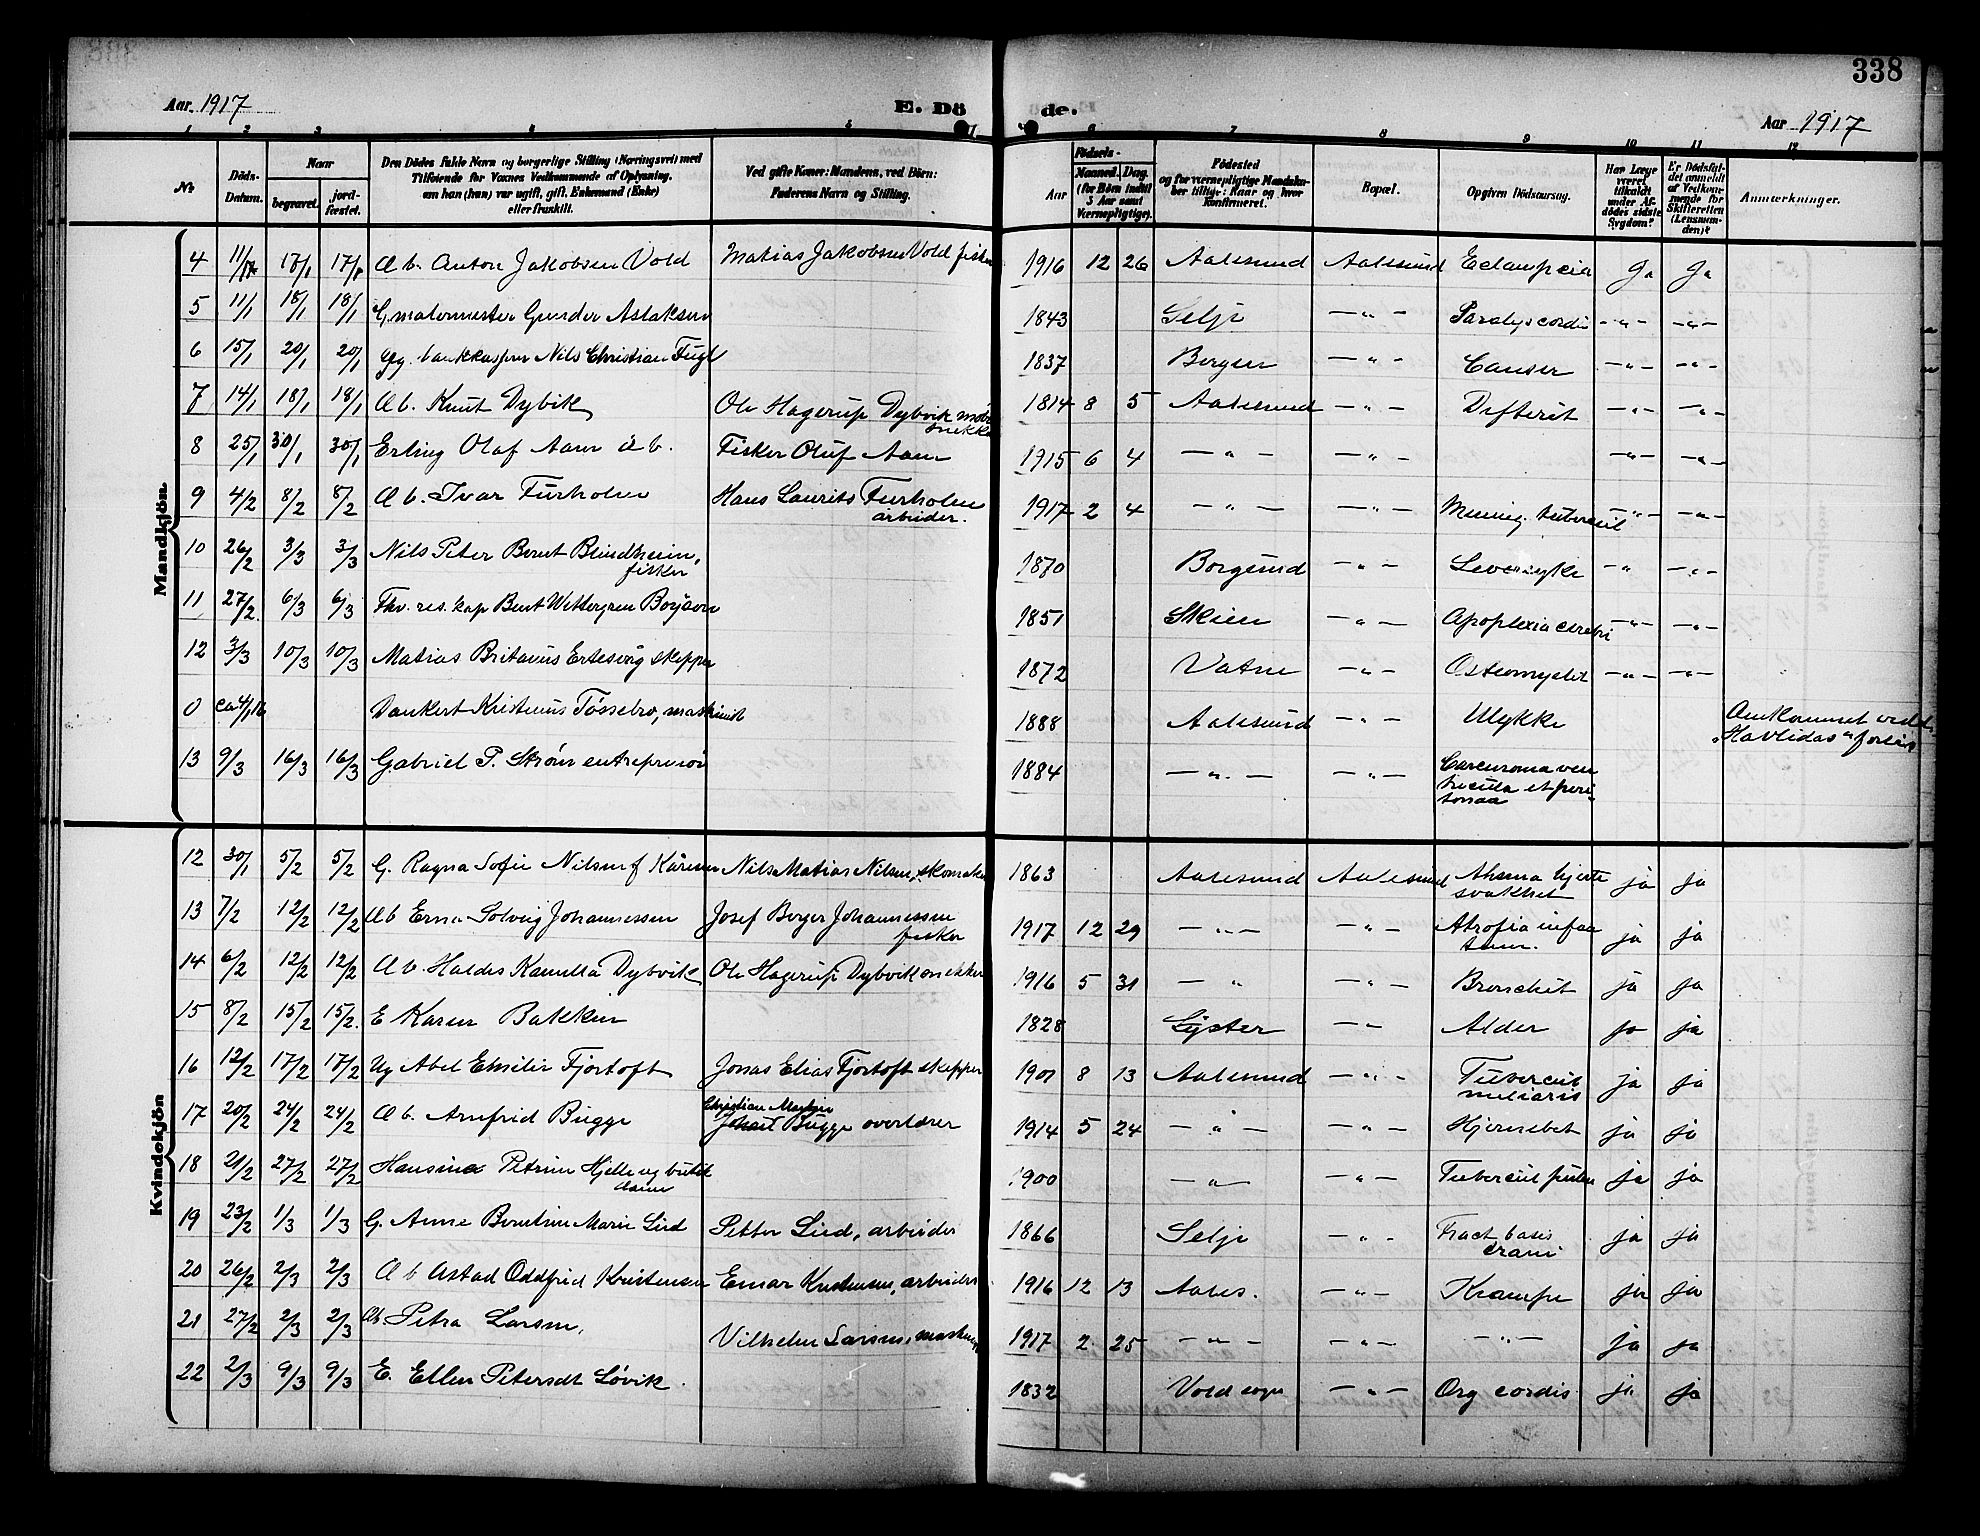 338
Aar 1917 E. Dö de. Aar 1917
1 2 3 4 5 6 7 8 9 10 11 12
No
Döds-Datum.
Naar
begravet.
jord-fæstet.
Den Dödes fulde Navn og borgerlige Stilling (Næringsvei) med
Tilføiende for Voxnes Vedkommende af Oplysning,
om han (hun) var ugift, gift, Enkemand (Enke)
eller fraskilt.
Ved gifte Koner: Mandens, ved Börn:
Faderens Navn og Stilling.
Aar
Födsels-
Maaned. Dag.
(for Börn indtil
5 Aar samt
Værnepligtige).
Födested
og for værnepligtige Mandskaber tillige: Naar og hvor
konfirmeret.
Bopæl.
Opgiven Dödsaarsag.
Har Læge
været
tilkaldt
under Afdödes sidste
Sygdom?
Er Dödsfaldet anmeldt
af Vedkommende for
Skifteretten
(Lensmanden)?
Anmærkninger.
Mandkjön.
4 11/1 17/1 17/1 Ab. Anton Jakobsen Vold Matias Jakobsen Vold fisker 1916 12 26 Aalesund Aalesund Eclampcia Ja Ja
5 11/1 18/1 18/1 G. malermester Gunder Aslaksen 1843 Selje — " — Paralys cordis — " — — " —
6 15/1 20/1 20/1 gg. bankkasserer Nils Christian Fugl 1837 Bergen — " — Canser — " — — " —
7 14/1 18/1 18/1 Ab. Knut Dybvik Ole Hagerup Dybvik møbel
snekker 1814 8 5 Aalesund — " — Difterit — " — — " —
8 25/1 30/1 30/1 Erling Olaf Aam ab. Fisker Oluf Aam 1915 6 4 — " — — " — — " — — " —
9 4/2 8/2 8/2 Ab. Ivar Furholm Hans Laurits Furholm
arbeider. 1917 2 4 — " — — " — Mening. tubercul — " — — " —
10 26/2 3/3 3/3 Nils Peter Bernt Blindheim,
fisker 1870 Borgund — " — Leversyke — " — — " —
11 27/2 6/3 6/3 Fhv. res. kap Bent Wettergren 1851 Skien — " — Apoplexia cerebri — " — — " —
12 3/3 10/3 10/3 Matias Britanus Ertesvåg skipper 1872 Vatne — " — Osteomyelit — " — — " —
0 ca 4/1 16 Dankert Kristinus Tøssebro, maskinist 1888 Aalesund — " — Ulykke Omkommet ved
"Havlidas" forlis
13 9/3 16/3 16/3 Gabriel P. Strøm entreprenør 1884 — " — — " — Carcinoma ven
tricula et peri
tonaa
Kvindekjön
12 30/1 5/2 5/2 G. Ragna Sofie Nilsen f Nils Matias Nilsen, skomaker 1863 Aalesund Aalesund hjerte
svakhet ja ja
13 7/2 12/2 12/2 Ab Erna Solveig Johannessen Josef Berger Johannessen
fisker 1917 12 29 — " — — " — Atrofia infan
tum. ja ja
14 6/2 12/2 12/2 Ab. Haldis Kamilla Dybvik Ole Hagerup Dybvik snekker 1916 5 31 — " — " — Bronchit ja ja
15 8/2 15/2 15/2 E Karen Bakken 1828 Lyster — " — Alder ja ja
16 12/2 17/2 17/2 Ug Abel Emilie Fjørtoft Jonas Elias Fjørtoft skipper 1901 8 13 Aalesund — " — Tubercul
miliaris ja ja
17 20/2 24/2 24/2 Ab. Arnfrid Bugge Christian
Bugge overlærer 1914 5 24 — " — — " — Hjernebet ja ja
18 21/2 27/2 27/2 Hansine Petrine Hjelle ug butik
dame 1900 — " — — " — Tubercul pulm ja ja
19 23/2 1/3 1/3 G. Anne Berntine Marie Lied Petter Lied, arbeider 1866 Selje — " — Fract basis
crani ja ja
20 26/2 2/3 2/3 Ab Astad Oddfrid Kristensen Einar Kristensen, arbeider 1916 12 13 Aales. — " — Krampe ja ja
21 27/2 2/3 2/3 Ab. Petra Larsen, Vilhelm Larsen, 1917 2 25 — " — — " — — " — ja ja
22 2/3 9/3 9/3 E. Ellen Petersdt Løvik 1832 Vold sogn — " — Org cordis ja ja